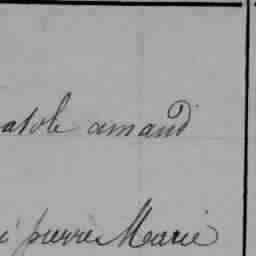 atole amand
pierre Marie